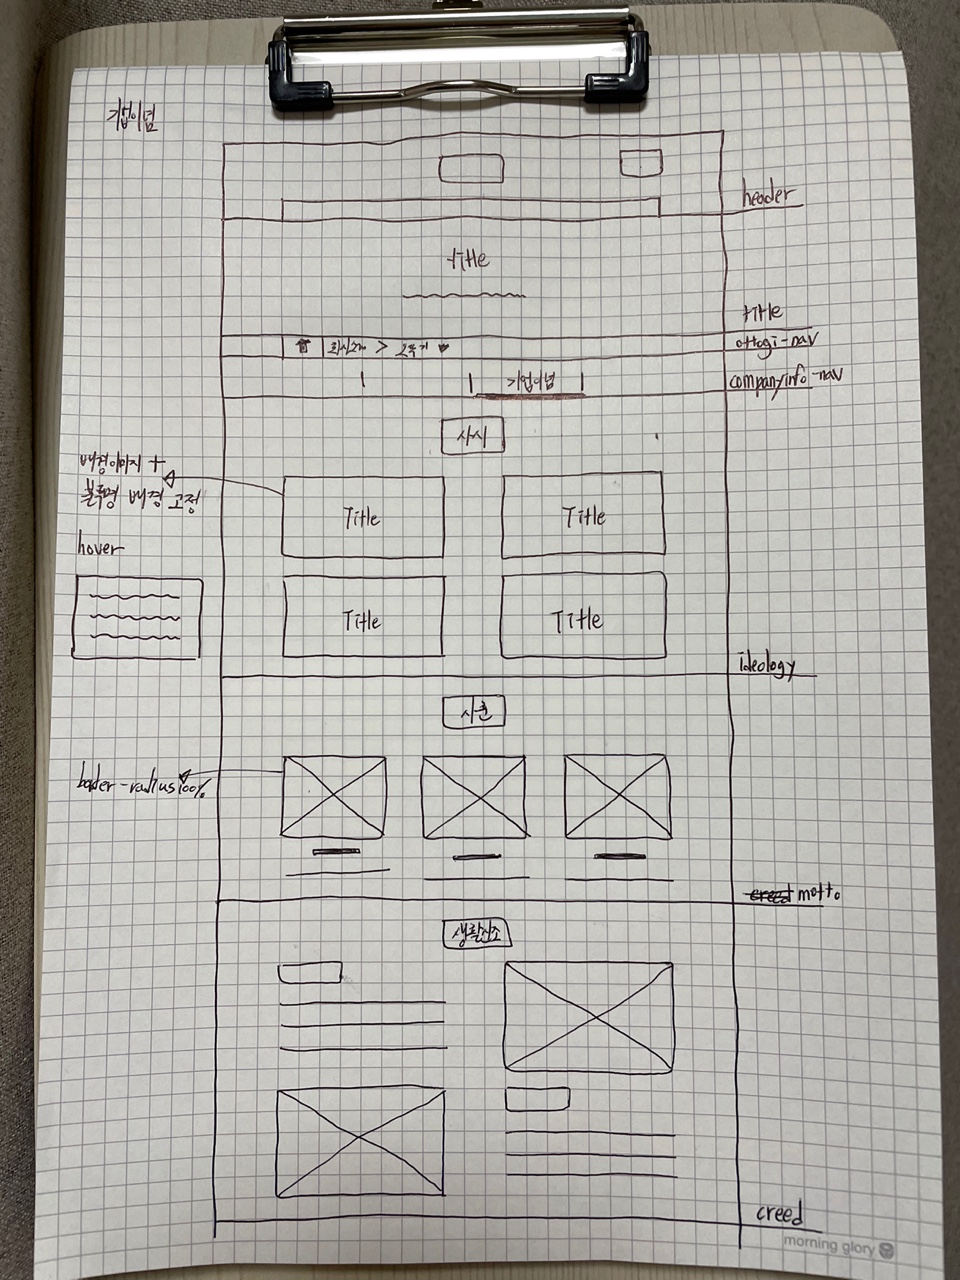 기업이념
header
title
title
회사소개 >
ottogi-nav
기업이념
companyinfo-nav
사시
배경이미지 +
불투명 배경 고정
Title
Title
hover
Title
Title
ideology
사훈
border-radius 100%
creed motto
생활신조
creed
morning glory